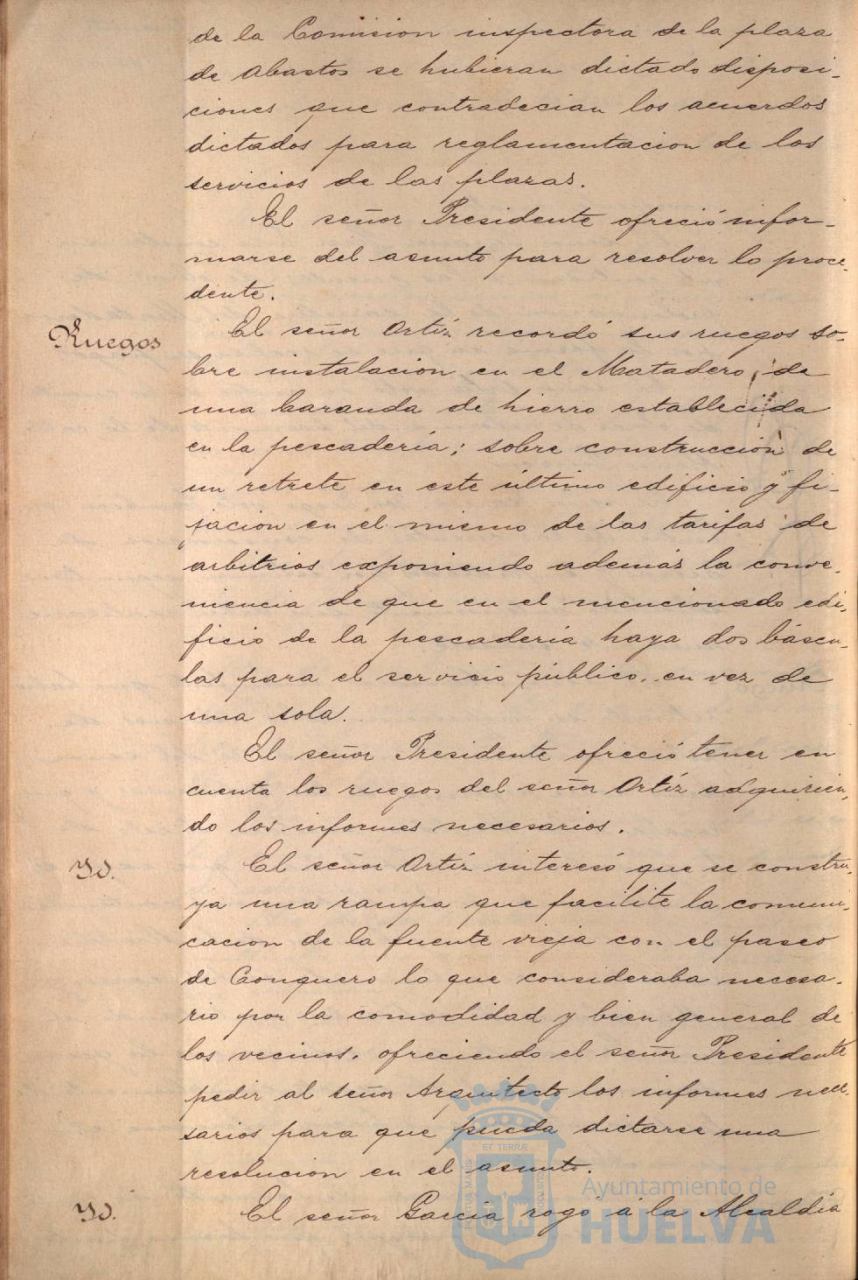 de la Comision inspectora de la plaza
de abastos se hubieran dictado disposi-
ciones que contradecian los acuerdos
dictados para reglamentacion de los
servicios de las plazas.
El señor Presidente ofreció infor-
marse del asunto para resolver lo proce-
dente.
Ruegos
El señor Ortíz recordó sus ruegos so-
bre instalacion en el Matadero, de
una baranda de hierro establecida
en la pescadería; sobre construcción de
un retrete en este último edificio y fi-
jacion en el mismo de las tarifas de
arbitrios exponiendo además la conve-
niencia de que en el mencionado edi-
ficio de la pescadería haya dos báscu-
las para el servicio público, en vez de
una sola.
El señor Presidente ofreció tener en
cuenta los ruegos del señor Ortíz adquirien-
do los informes necesarios.
Yd.
El señor Ortíz interesó que se constru-
ya una rampa que facilite la comuni-
cacion de la fuente vieja con el paseo
de Conquero lo que consideraba necesa-
rio por la comodidad y bien general de
los vecinos, ofreciendo el señor Presidente
pedir al señor Arquitecto los informes nece-
sarios para que pueda dictarse una
resolucion en el asunto.
Yd.
El señor García rogó á la Alcaldía
Ayuntamiento de
HUELVA
ET TERRÆ